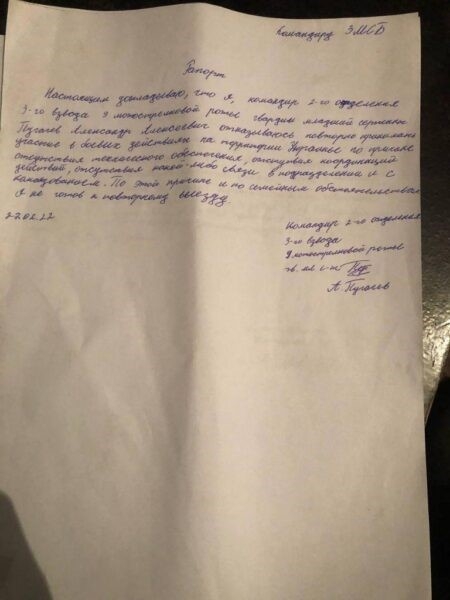 Командиру 3МСБ
Рапорт
Настоящим докладываю, что я, командир 2-го отделения
3-го взвода 9 мотострелковой роты гвардии младший сержант
Пугачев Александр Алексеевич отказываюсь повторно принимать
участие в боевых действиях на территории Украины по причине
отсутствия технического обеспечения, отсутствия координаций
действий, отсутствия какой-либо связи в подразделении и с
командованием. По этой причине и по семейным обстоятельствам
я не готов к повторному выезду
22
Командир 2-го отделения
3-го взвода
9 мотострелковой роты
гв. мл с-т
А. Пугачев